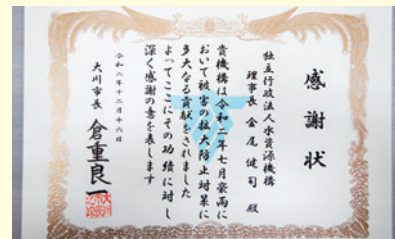 感謝状
独立行政法人水資源機構
理事長 金尾健司 殿
貴機構は令和二年七月豪雨に
おいて被害の拡大防止対策に
多大なる貢献をされました
よってここにその功績に対し
深く感謝の意を表します
令和二年十二月十六日
大川市長 倉重良一